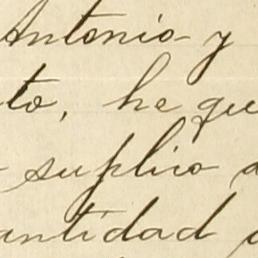 Antonio y
to, he que
suplico a
antidad d